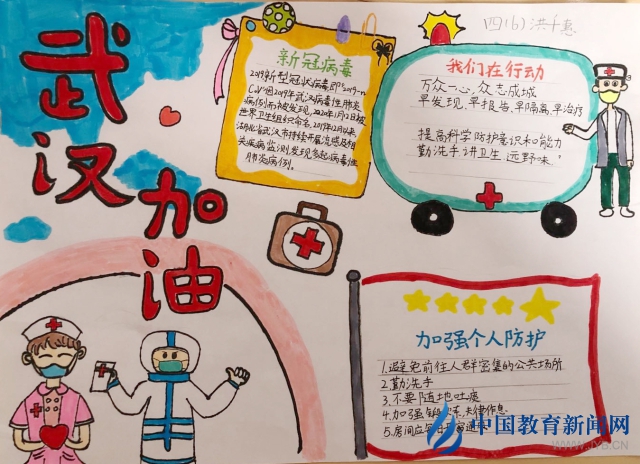 武汉加油
四(6) 洪千惠
新冠病毒
2019新型冠状病毒,即"2019-n
CoV"因2019年武汉病毒性肺炎
病例而被发现,2020年1月12日被
世界卫生组织命名。2019年12月以来,
湖北省武汉市持续开展流感及相
关疾病监测,发现多起病毒性
肺炎病例。
我们在行动
万众一心,众志成城
早发现,早报告,早隔离,早治疗
提高科学防护意识和能力
勤洗手 讲卫生 远野味
加强个人防护
1.避免前往人群密集的公共场所
2.勤洗手
3.不要随地吐痰
4.加强锻炼,规律作息
5.房间应
中国教育新闻网
WWW.JYB.CN